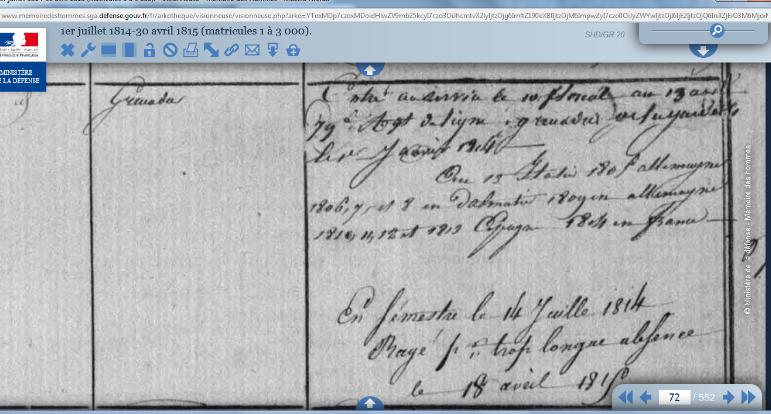 www.memoiredeshommes.sga.defense.gouv.fr/fr/arkotheque/visionneuse/visionneuse.php?arko=
1er juillet 1814-30 avril 1815 (matricules 1 à 3 000).
SHD/GR 20
MINISTÈRE
DE LA DÉFENSE
Grenadier
Entré au service le 10 floréal an 13 au
79e Régt de ligne, grenadier
le 1er Janvier 1814
An 13 Italie 1805 allemagne
1806, 7, et 8 en Dalmatie 1809 en allemagne
1810, 11, 12 et 1813 Espagne 1814 en france
En Sémestre le 14 Juillet 1814
Rayé pr trop longue absence
le 18 avril 1815
© Ministère de la défense - Mémoire des hommes
72 / 552